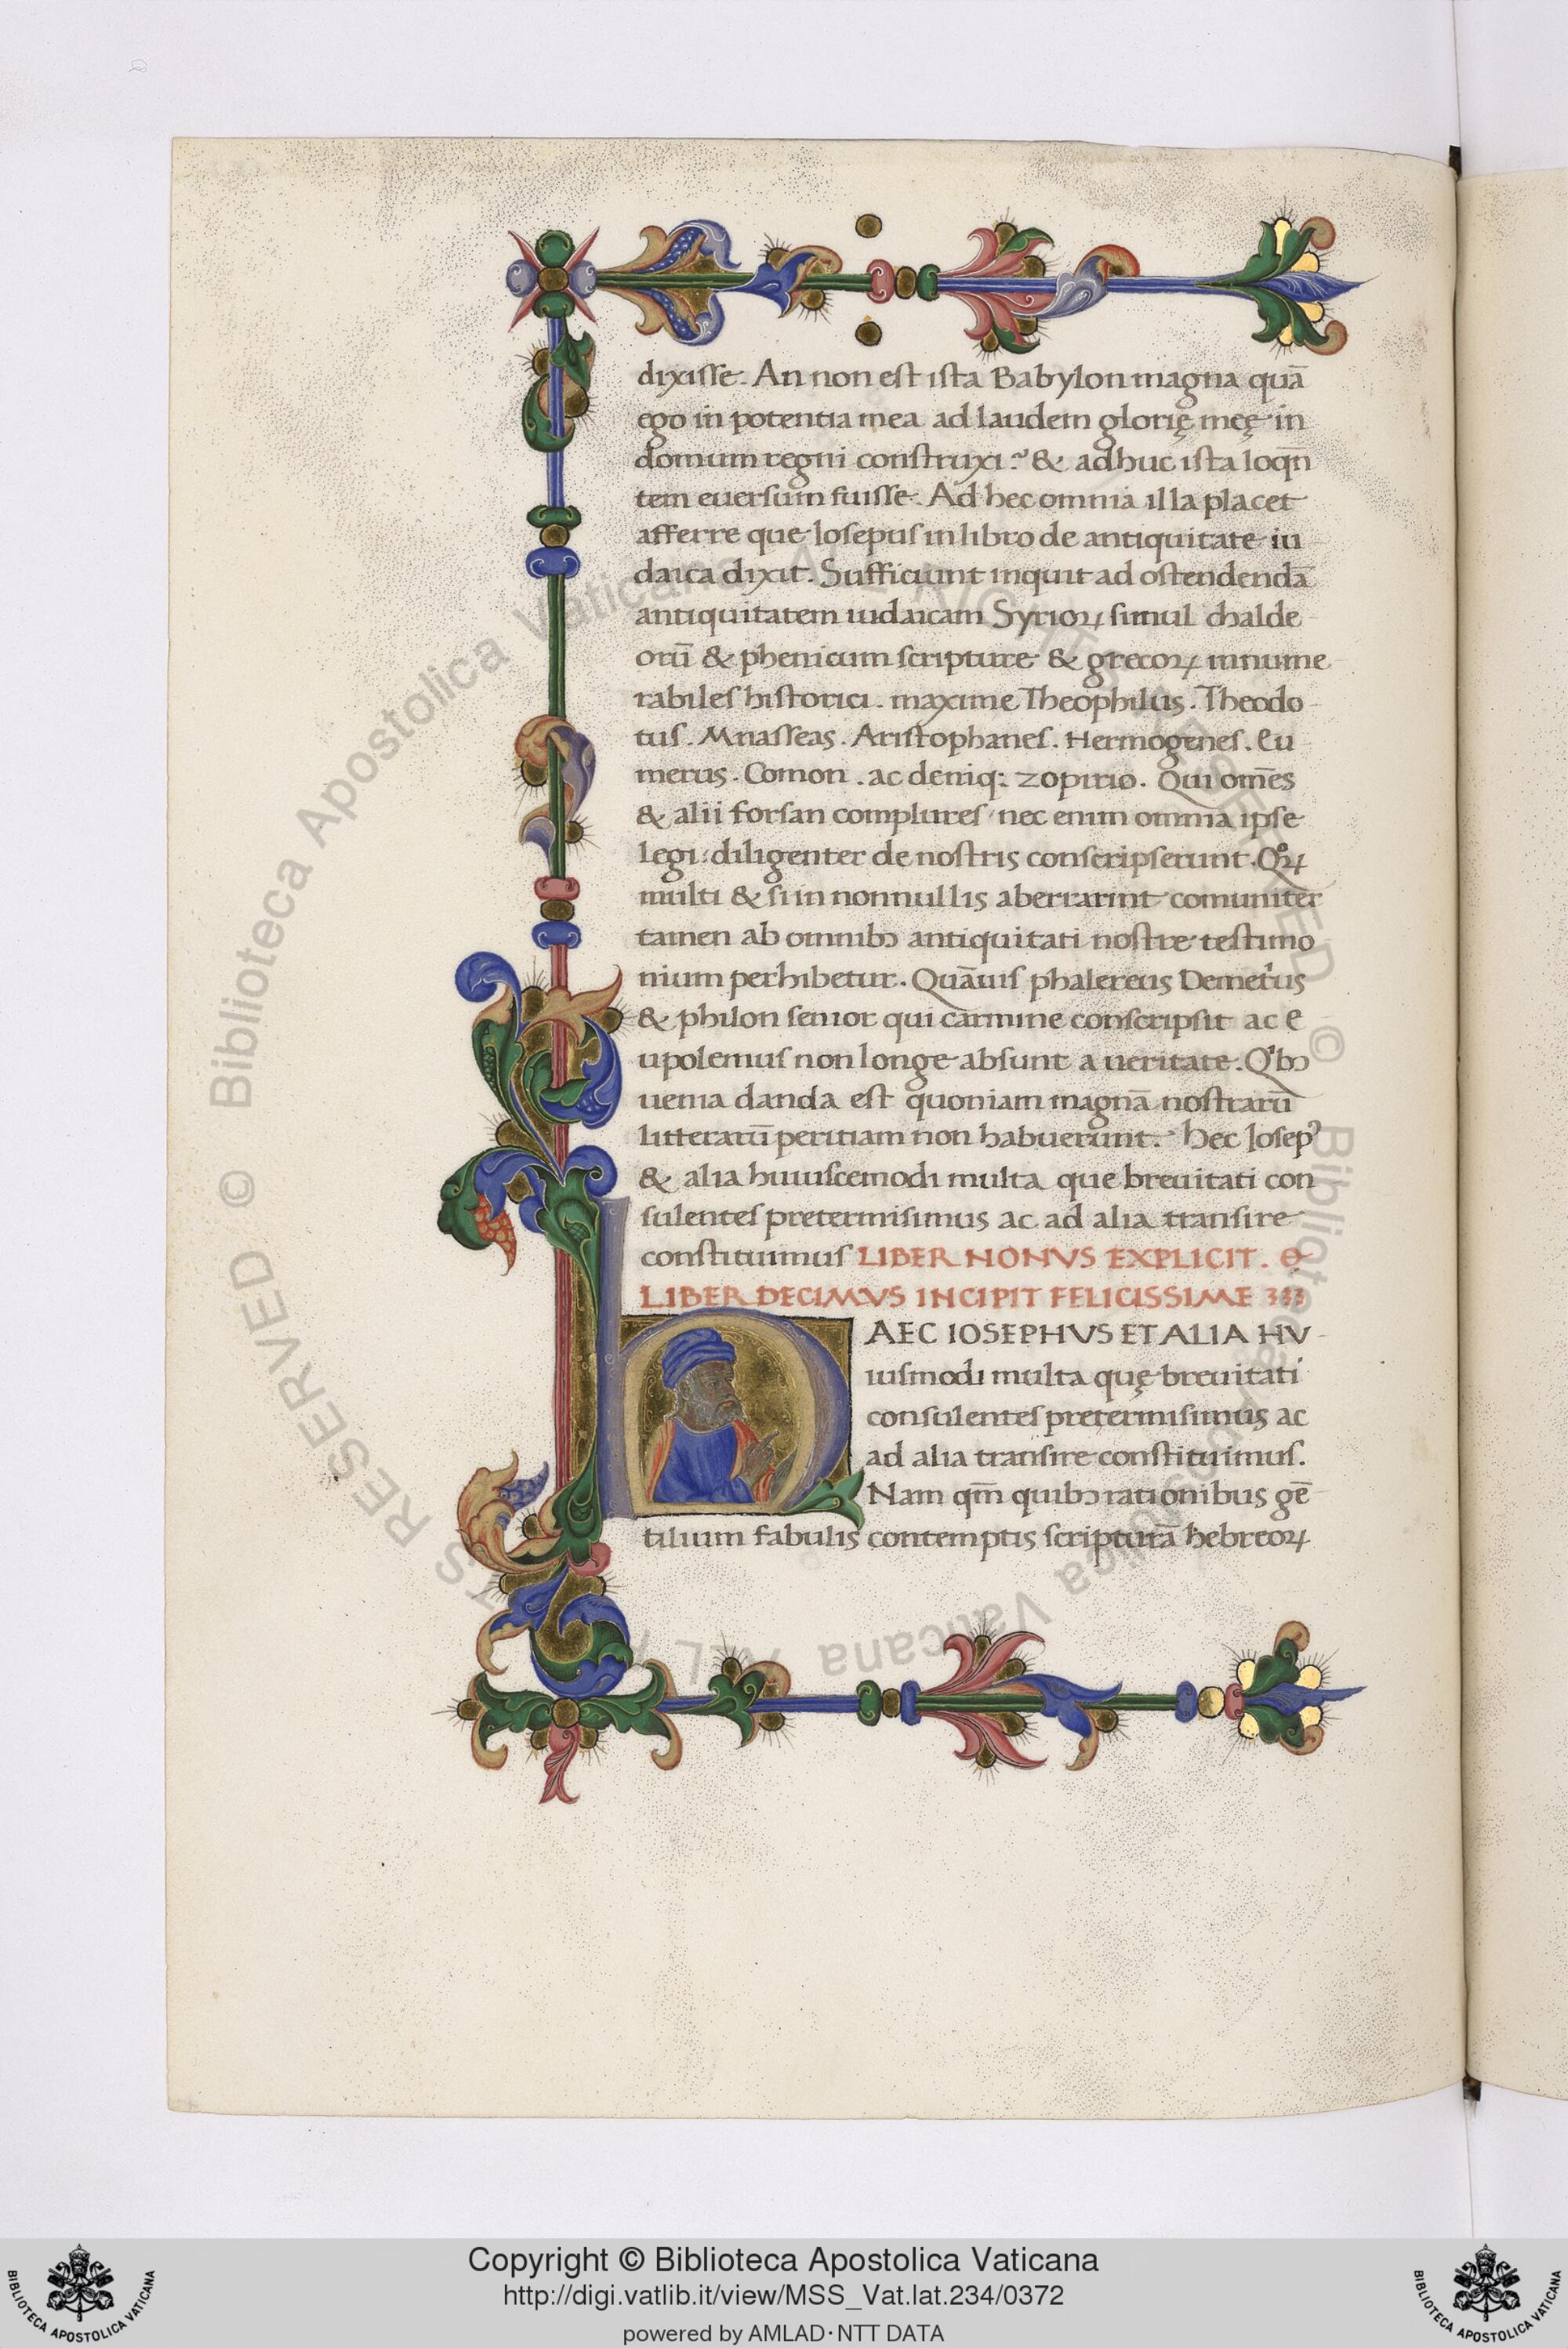 dixisse. An non est ista Babylon magna quā
ego in potentia mea ad laudem glorię meę in
domum regni construxi? & adhuc ista loqn̄
tem euersum fuisse. Ad hec omnia illa placet
afferre que Iosepus in libro de antiquitate iu
daica dixit. Sufficiunt inquit ad ostendendā
antiquitatem iudaicam Syrioꝝ simul chalde
orū & phenicum scripture & grecoꝝ innume
rabiles historici. maxime Theophilus. Theodo
tus. Mnasseas. Aristophanes. Hermogenes. Eu
merus. Comon. ac deniq: zopirio. Qui om̄es
& alii forsan complures nec enim omnia ipse
legi: diligenter de nostris conscripserunt. Qoꝝ
multi & si in nonnullis aberrarint comuniter
tamen ab omnibꝰ antiquitati nostre testimo
nium perhibetur. Quāuis phalereus Demetrius
& philon senior qui carmine conscripsit ac e
upolemus non longe absunt a ueritate. Qibꝰ
uenia danda est quoniam magnā nostrarū
litterarū peritiam non habuerunt. Hec Iosepꝰ
& alia huiuscemodi multa que breuitati con
sulentes pretermisimus ac ad alia transire
constituimus LIBER NONVS EXPLICIT. &
LIBER DECIMVS INCIPIT FELICISSIME
HAEC IOSEPHVS ET ALIA HV
iusmodi multa quę breuitati
consulentes pretermisimus ac
ad alia transire constituimus.
Nam qm̄ quibꝰ rationibus gē
tilium fabulis contemptis scripturā hebreoꝝ
© Biblioteca Apostolica Vaticana ALL RIGHTS RESERVED © Biblioteca Apostolica Vaticana ALL RIGHTS RESERVED
BIBLIOTECA APOSTOLICA VATICANA
Copyright © Biblioteca Apostolica Vaticana
http://digi.vatlib.it/view/MSS_Vat.lat.234/0372
powered by AMLAD·NTT DATA
BIBLIOTECA APOSTOLICA VATICANA